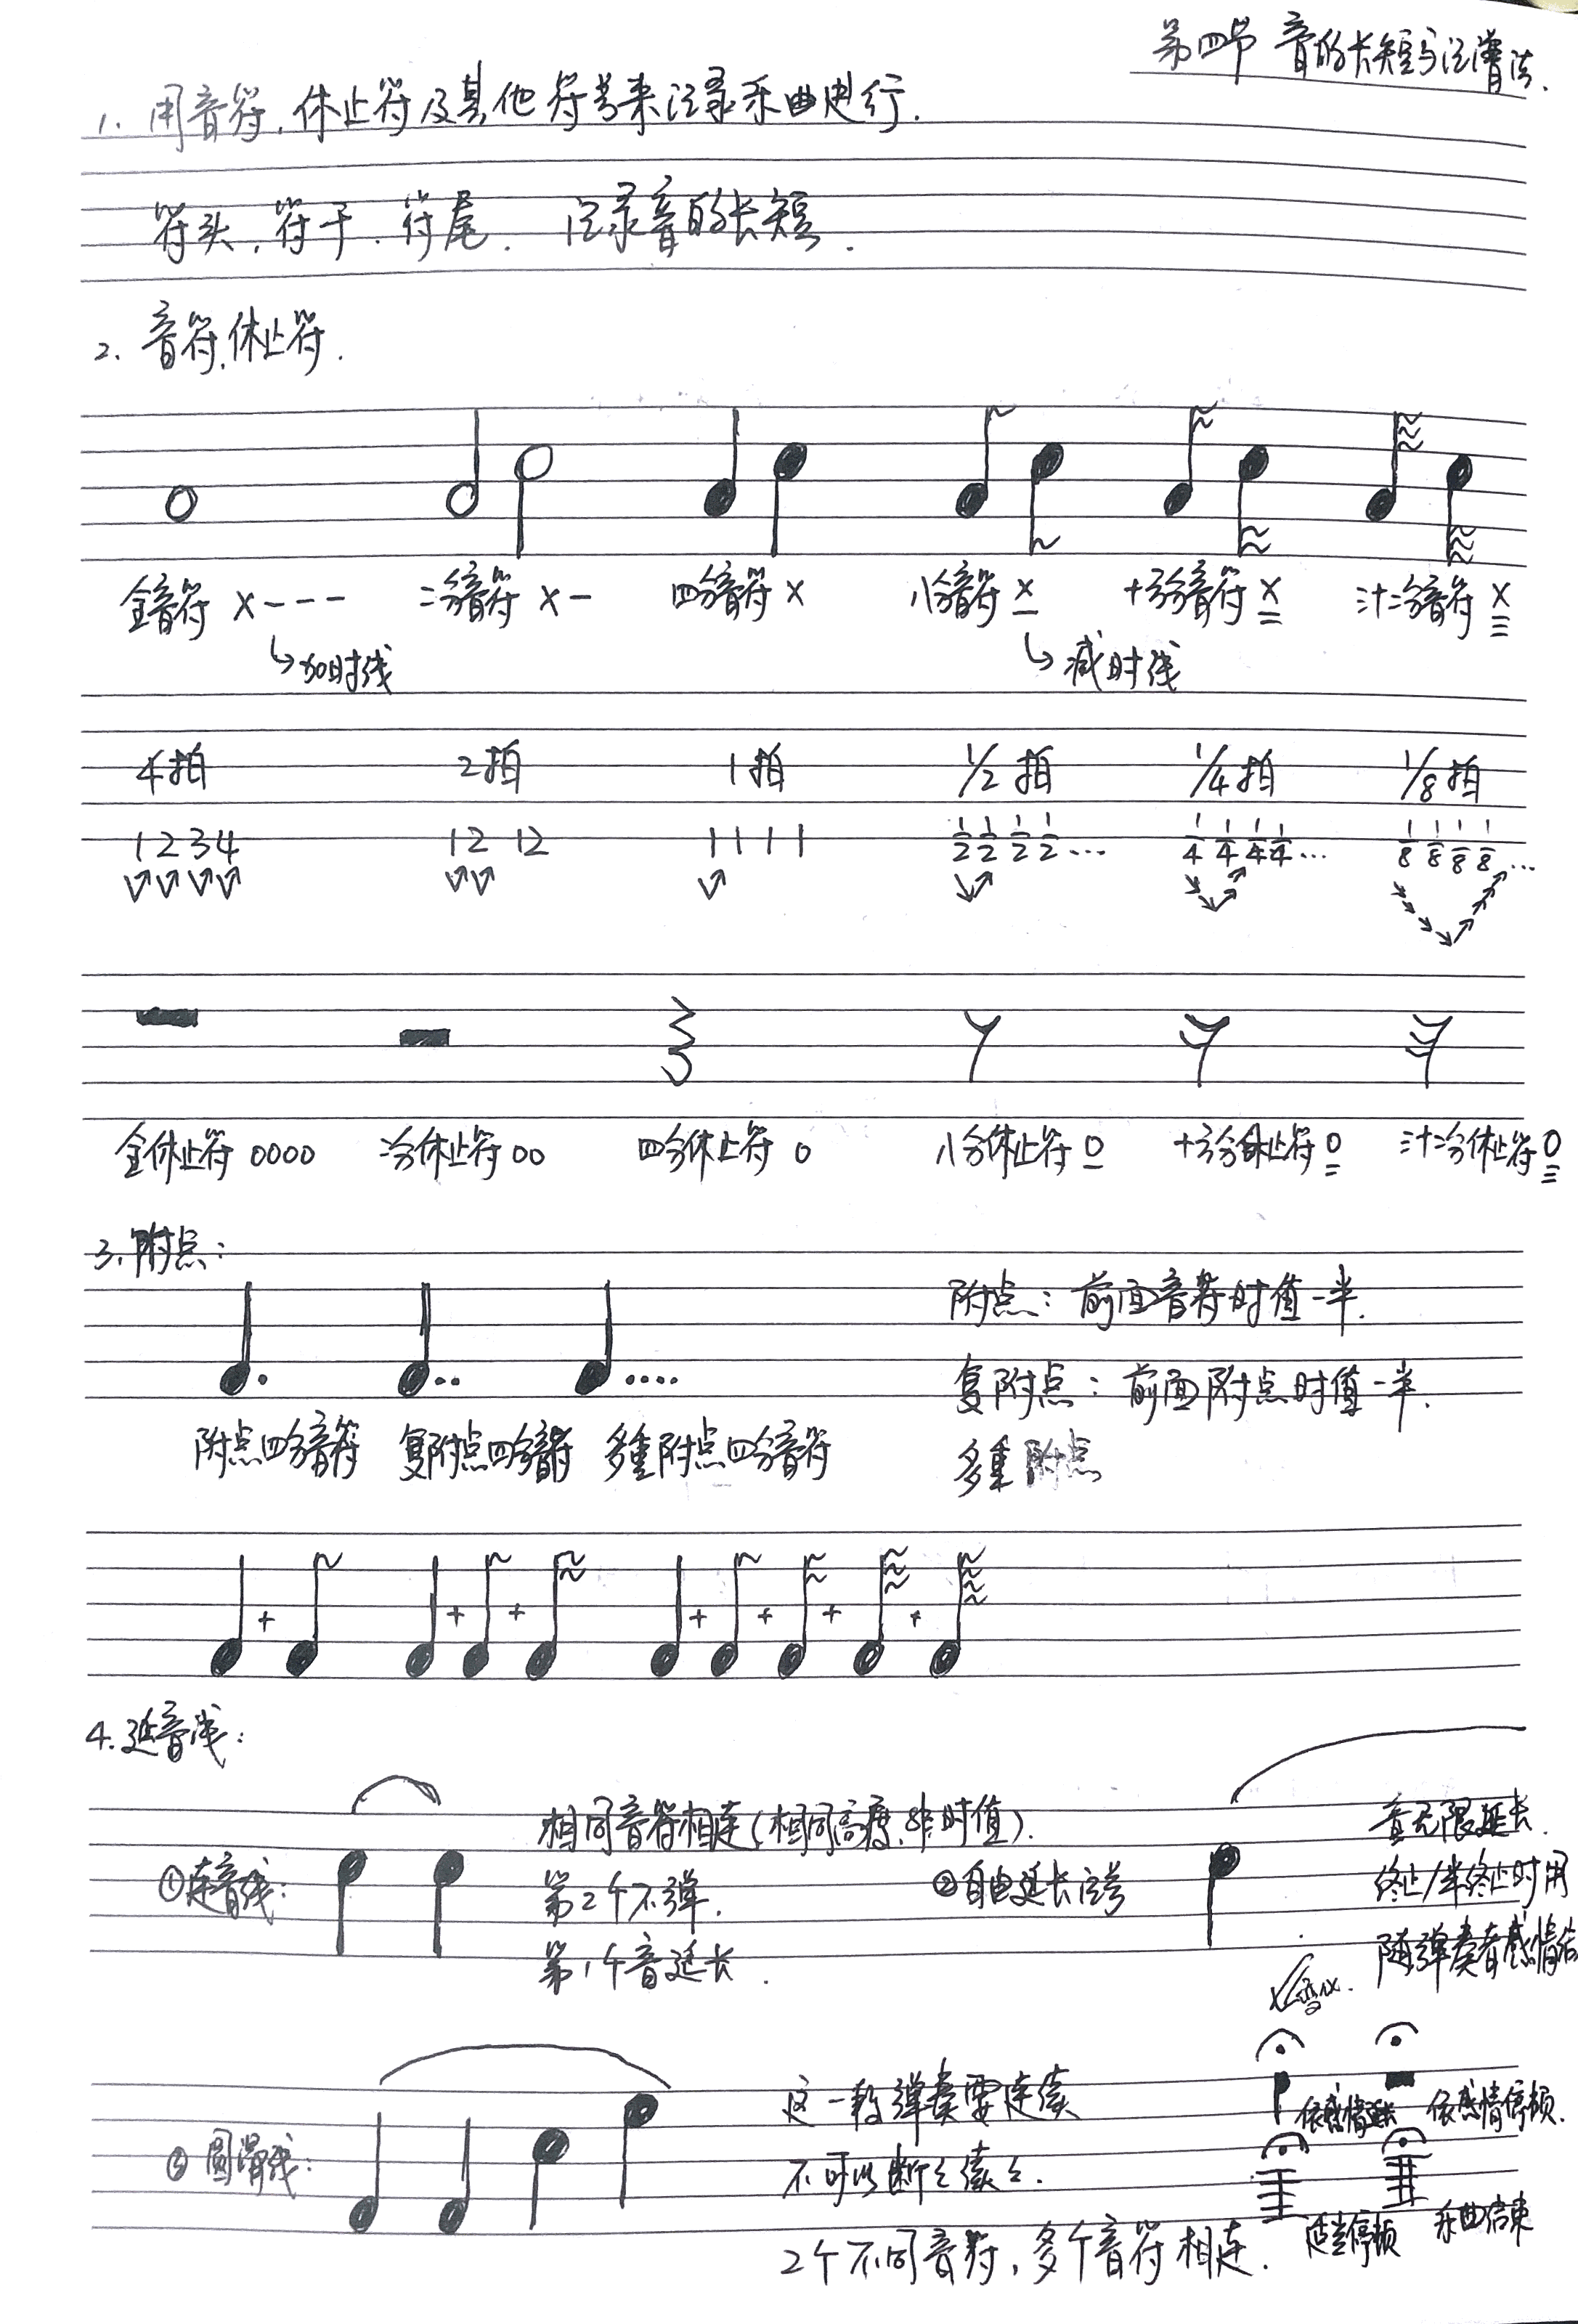 第四节 音的长短与记谱法.
1. 用音符,休止符及其他符号来记录乐曲进行.
符头,符干,符尾. 记录音的长短.
2. 音符,休止符.
全音符 X--- 二分音符 X- 四分音符 X 八分音符 X 十六分音符 X 三十二分音符 X
↳加时线 ↳减时线
4拍 2拍 1拍 1/2拍 1/4拍 1/8拍
1234 12 12 1111 1/2 1/2 1/2 1/2... 1/4 1/4 1/4 1/4... 1/8 1/8 1/8 1/8...
全休止符 0000 二分休止符 00 四分休止符 0 八分休止符 0 十六分休止符 0 三十二分休止符 0
3. 附点:
附点: 前面音符时值一半.
复附点: 前面附点时值一半.
附点四分音符 复附点四分音符 多重附点四分音符
多重附点
+ + + + + + +
4. 延音线:
①连音线:
相同音符相连(相同高度,非时值).
第2个不弹.
第1个音延长.
②自由延长记号
音无限延长.
终止/半终止时用
随弹奏者感情
③圆滑线:
这一段弹奏要连续
不可以断断续续.
2个不同音符,多个音符相连.
依感情延长 依感情停顿.
停顿 乐曲结束